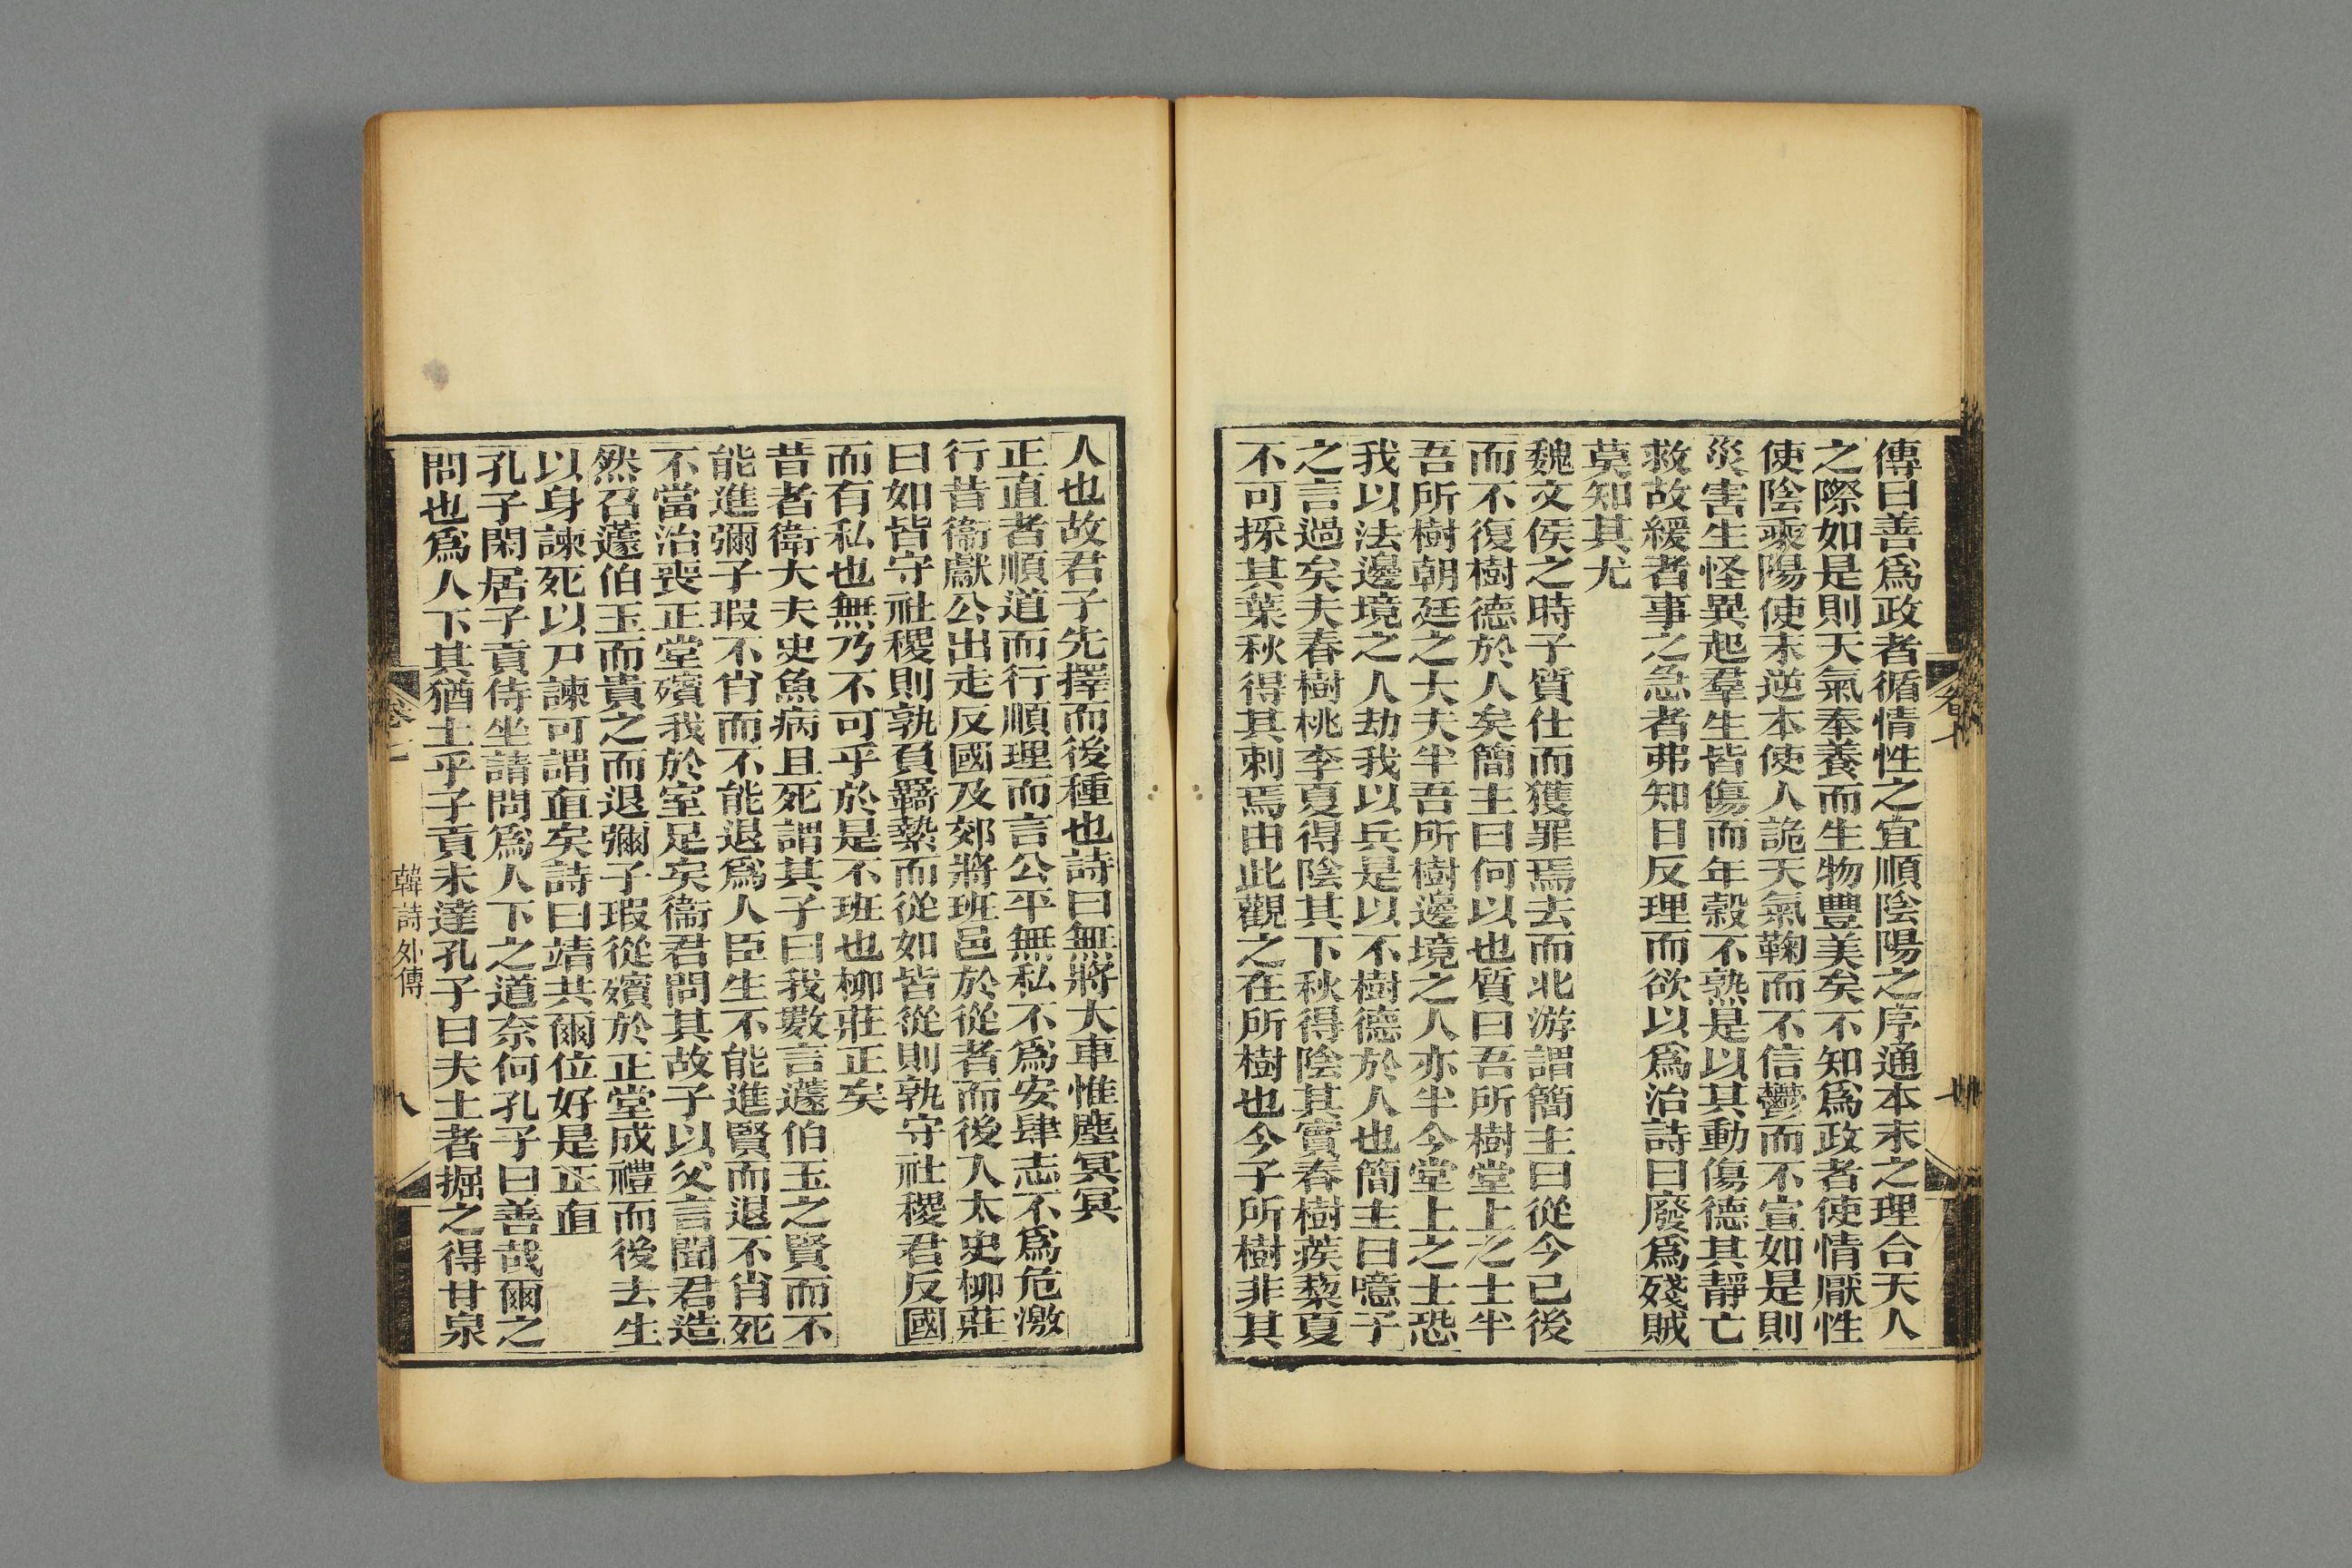 傳曰善爲政者循情性之宜順陰陽之序通本末之理合天人
之際如是則天氣奉養而生物豐美矣不知爲政者使情厭性
使陰乘陽使末逆本使人詭天氣鞠而不信鬱而不宣如是則
災害生怪異起羣生皆傷而年穀不熟是以其動傷德其靜亡
救故緩者事之急者弗知日反理而欲以爲治詩曰廢爲殘賊
莫知其尤
魏文侯之時子質仕而獲罪焉去而北游謂簡主曰從今已後
而不復樹德於人矣簡主曰何以也質曰吾所樹堂上之士半
吾所樹朝廷之大夫半吾所樹邊境之人亦半今堂上之士恐
我以法邊境之人劫我以兵是以不樹德於人也簡主曰噫子
之言過矣夫春樹桃李夏得陰其下秋得陰其實春樹蒺藜夏
不可採其葉秋得其刺焉由此觀之在所樹也今子所樹非其
人也故君子先擇而後種也詩曰無將大車惟塵冥冥
正直者順道而行順理而言公平無私不爲安肆志不爲危激
行昔衞獻公出走反國及郊將班邑於從者而後入太史柳莊
曰如皆守社稷則孰負羈縶而從如皆從則孰守社稷君反國
而有私也無乃不可乎於是不班也柳莊正矣
昔者衛大夫史魚病且死謂其子曰我數言蘧伯玉之賢而不
能進彌子瑕不肖而不能退爲人臣生不能進賢而退不肖死
不當治喪正堂殯我於室足矣衞君問其故子以父言聞君造
然召蘧伯玉而貴之而退彌子瑕從殯於正堂成禮而後去生
以身諫死以尸諫可謂直矣詩曰靖共爾位好是正直
孔子閑居子貢侍坐請問爲人下之道奈何孔子曰善哉爾之
問也爲人下其猶土乎子貢未達孔子曰夫土者掘之得甘泉
韓詩外傳
八